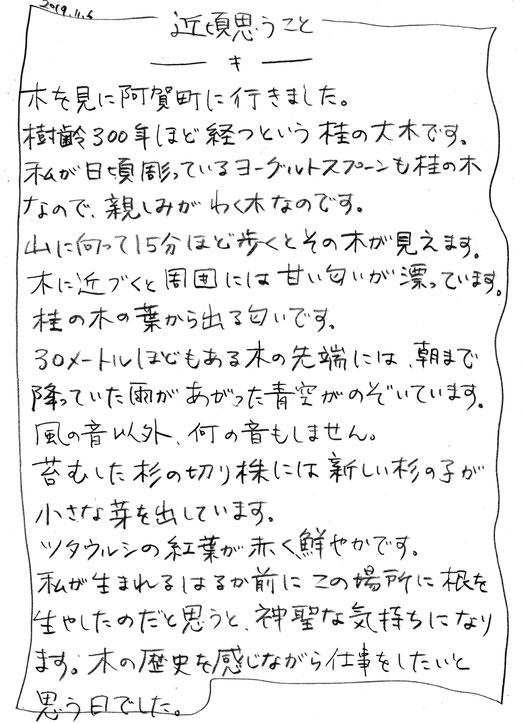 2019.11.6
近頃思うこと
キ
木を見に阿賀町に行きました。
樹齢300年ほど経つという桂の大木です。
私が日頃彫っているヨーグルトスプーンも桂の木
なので、親しみがわく木なのです。
山に向って15分ほど歩くとその木が見えます。
木に近づくと周囲には甘い匂いが漂っています。
桂の木の葉から出る匂いです。
30メートルほどもある木の先端には、朝まで
降っていた雨があがった青空がのぞいています。
風の音以外、何の音もしません。
苔むした杉の切り株には新しい杉の子が
小さな芽を出しています。
ツタウルシの紅葉が赤く鮮やかです。
私が生まれるはるか前にこの場所に根を
生やしたのだと思うと、神聖な気持ちになり
ます。木の歴史を感じながら仕事をしたいと
思う日でした。